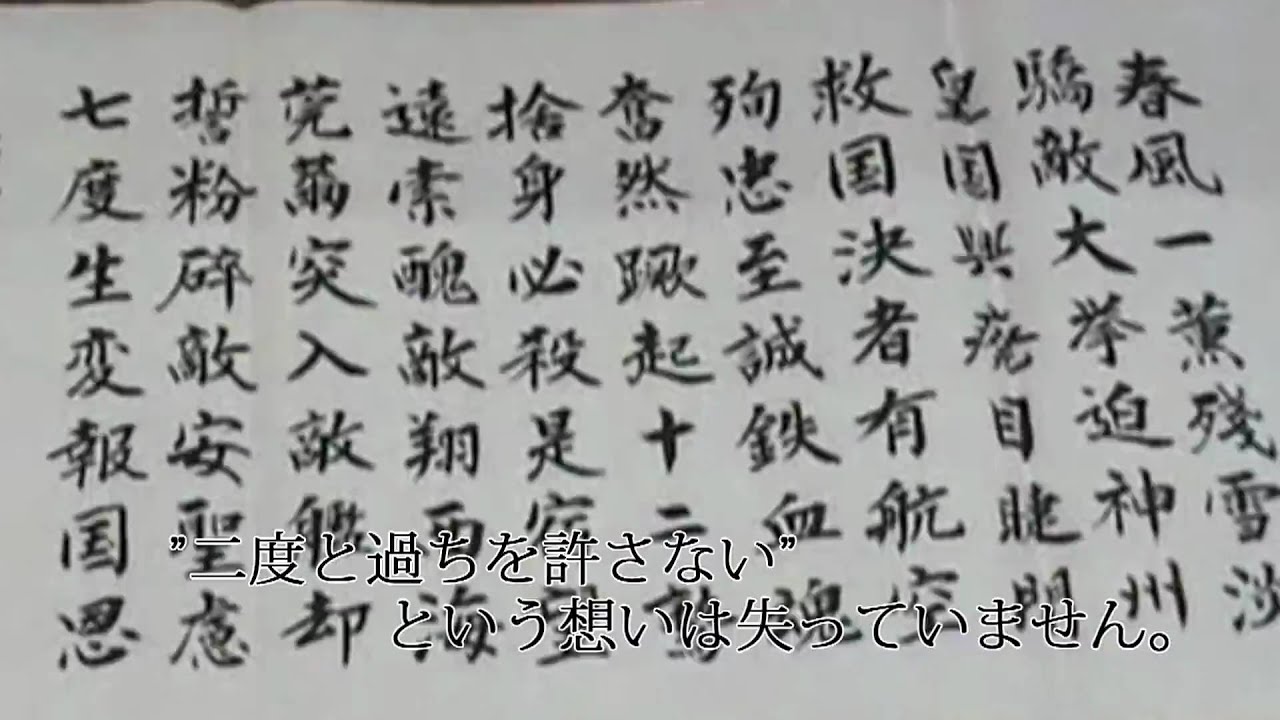 春風一薫殘雪淡
驕敵大挙迫神州
皇国興廃目睫
救国決者有航空
殉忠至誠鉄血魂
奮然蹶起十二
捨身必殺是空
遠索醜敵翔海
莞爾突入敵艦却
誓粉砕敵安聖慮
七度生変報国恩
”二度と過ちを許さない”
という想いは失っていません。